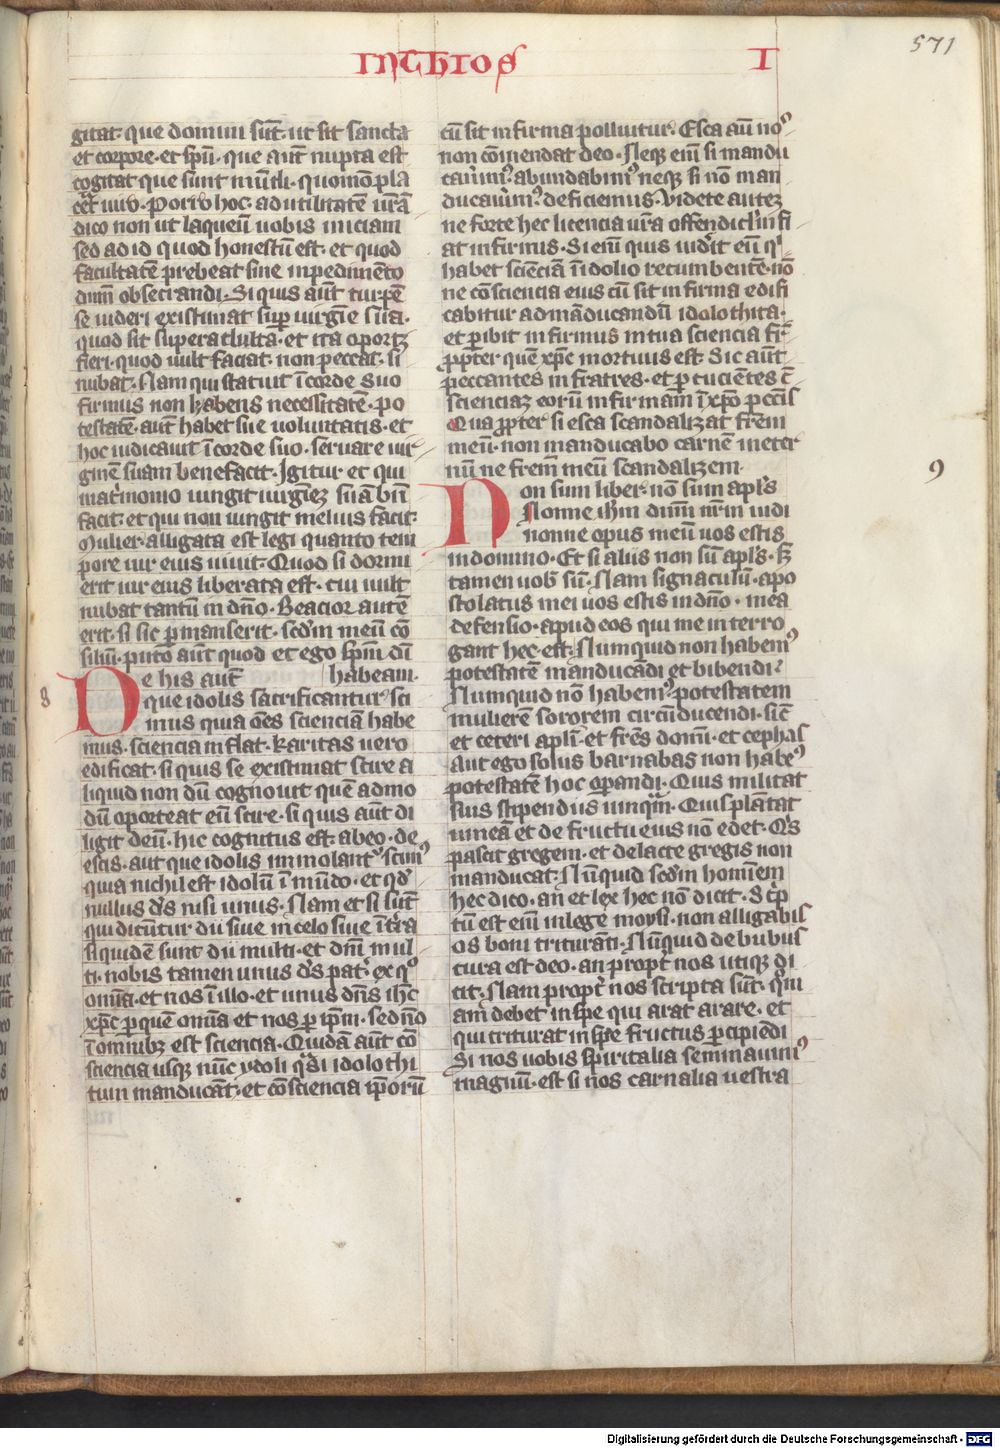 INTHIOS
I
571
gitat· que domini sūt· ut sit sancta
et corpore· et spū· que aut nupta est
cogitat que sunt mūdi· quomō pla
ceat uiro· Porro hoc· ad utilitatē urām
dico non ut laqueū uobis iniciam
sed ad id quod honestū est· et quod
facultatē prebeat sine inpedimēto
dnm obsecrandi· Si quis aūt turpē
se uideri existimat sup uirgīe sua·
quod sit superadulta· et ita oportȝ
fieri· quod uult faciat· non peccat· si
nubat· Nam qui statuit ī corde suo
firmus non habens necessitatē· po
testatē aut habet sue uoluntatis· et
hoc iudicauit ī corde suo· seruare uir
ginē suam bene facit· Igitur et qui
mat'monio iungit uirgīeȝ suā bn̄
facit· et qui non iungit melius facit·
Mulier alligata est legi quanto tem
pore uir eius uiuit· Quod si dormi
erit uir eius liberata est· cui uult
nubat tantū in dño· Beacior autē
erit· si sic pmanserit· scdm meū cō
siliū· puto aūt quod et ego spm dī
habeam·
8
De his aūt
que idolis sacrificantur· sci
mus quia ōes scienciā habe
mus· sciencia inflat· karitas uero
edificat· si quis se existimat scire a
liquid non dū cognouit quē admo
dū oporteat eū scire· si quis aūt di
ligit deū· hic cognitus est· ab eo· de
escis· aut que idolis immolant' scim9
quia nichil est idolū ī mūdo· et qd
nullus ds nisi unus· Nam et si sūt
qui dicūtur dii siue in celo siue ī t'ra
siquidē sunt dii multi· et dnī mul
ti· nobis tamen unus ds pat'· ex q°
omīa· et nos ī illo· et unus dns ihc
xpc p quē omīa et nos p ipm· sed nō
ī omnibȝ est sciencia· Quidā aūt cō
sciencia usqȝ nūc ydoli qsi idolothi
tum manducāt· et cōsciencia ipsorū
cū sit infirma polluitur· Esca aū nos
non cōmendat deo· Neqȝ eni si mandu
cauim9· abundabim9 neqȝ si nō man
ducauim9· deficiemus· Videte auteȝ
ne forte hec licencia urā offendiclm fi
at infirmis· Si eni quis uidit eū q
habet scienciā ī idolio recumbentē· nō
ne cōsciencia eius cū sit infirma edifi
cabitur ad māducandū idolothita·
et pibit infirmus in tua sciencia fr
ppter quē xpc mortuus est· Sic aūt
peccantes in fratres· et pcucientes cō
scienciaȝ eorū infirmam ī xpō peccatis
Qua ppter si esca scandalizat frem
meū· non manducabo carnē in eter
nū ne frem meū scandalizem·
9
Non sum liber· nō sum apls
Nonne ihm dnm nrm uidi
nonne opus meū uos estis
in domino· Et si aliis non sū apls· s;
tamen uob sū· Nam signaculū· apo
stolatus mei uos estis in dño· mea
defensio· apud eos qui me interro
gant hec est· Numquid non habem9
potestatē manducādi et bibendi·
Numquid nō habem9 potestatem
mulierē sororem circūducendi· sic
et ceteri apli· et frēs domi· et cephas
Aut ego solus barnabas non habe9
potestatē hoc opandi· Quis militat
suis stipendiis umqm· Quis plātat
uineā et de fructu eius nō edet· Qis
pascit gregem· et de lacte gregis non
manducat· Nūquid scdm hominem
hec dico· an et lex hec nō dicit· Scp
tū est eni in lege moysi· non alligabis
os boui triturāti· Nūquid de bubus
cura est deo· an propt' nos utiqȝ di
cit· Nam propt' nos scripta sūt· qm
am debet in spe qui arat arare· et
qui triturat in spe fructus pcipiēdi
Si nos uobis spiritalia seminauim9
magnū· est si nos carnalia uestra
Digitalisierung gefördert durch die Deutsche Forschungsgemeinschaft - DFG